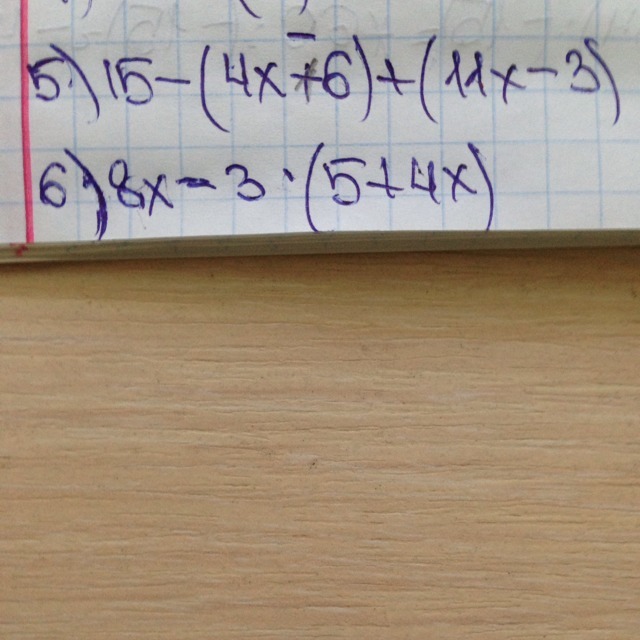 5) 15-(4x-6)+(11x-3)
6) 8x-3·(5+4x)